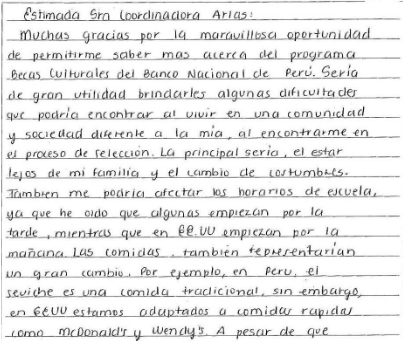 Estimada Sra Coordinadora Arias:
Muchas gracias por la maravillosa oportunidad
de permitirme saber mas acerca del programa
Becas Culturales del Banco Nacional de Perú. Sería
de gran utilidad brindarles algunas dificultades
que podría encontrar al vivir en una comunidad
y sociedad diferente a la mía, al encontrarme en
el proceso de selección. La principal sería, el estar
lejos de mi familia y el cambio de costumbres.
Tambien me podría afectar los horarios de escuela,
ya que he oído que algunas empiezan por la
tarde, mientras que en EE.UU empiezan por la
mañana. Las comidas, también representarían
un gran cambio. Por ejemplo, en Peru, el
seviche es una comida tradicional, sin embargo,
en EEUU estamos adaptados a comidas rapidas
como McDonald's y Wendy's. A pesar de que